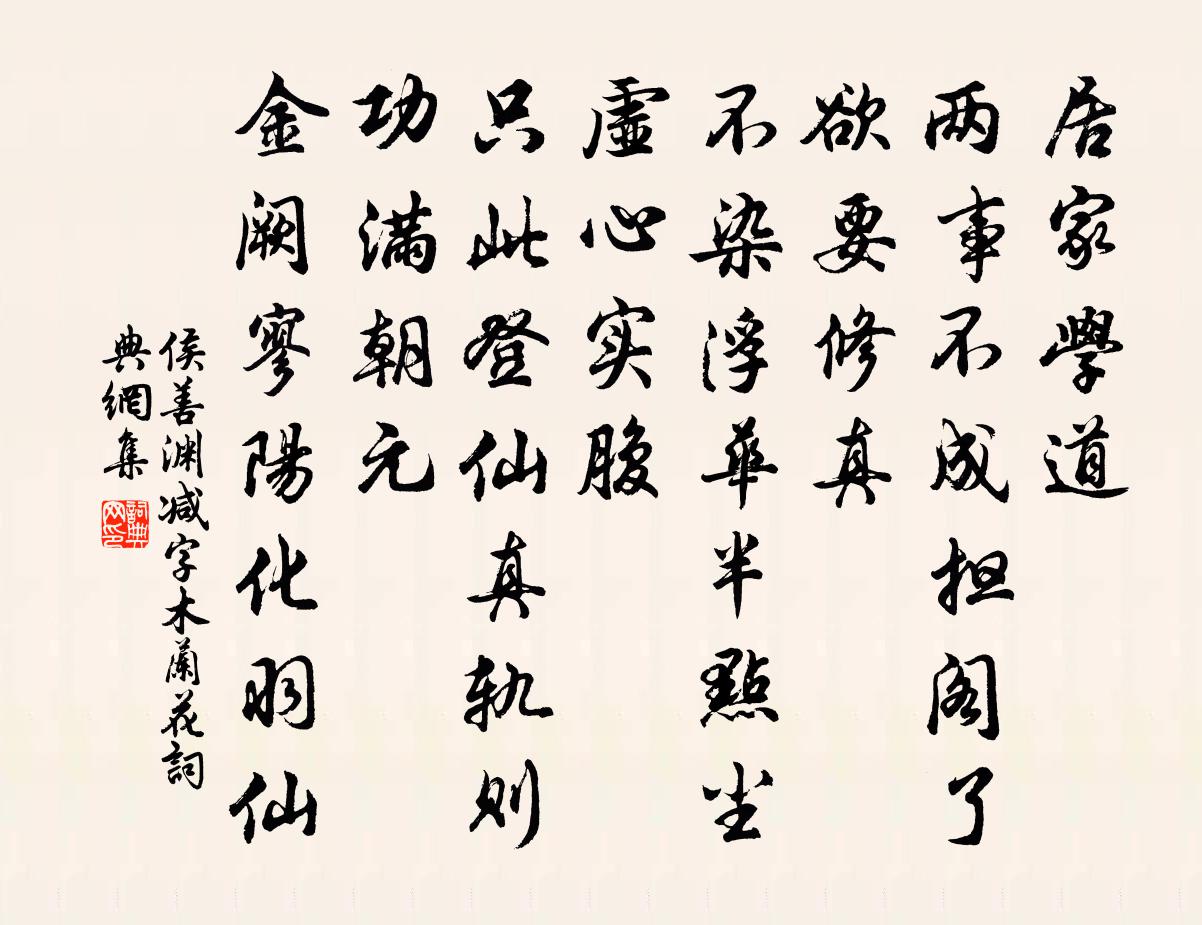 居家學道
两事不成担阁了
欲要修真
不染浮華半點尘
虛心实腹
只此登仙真轨则
功满朝元
金阙寥陽化羽仙
侯善渊减字木蘭花詞
典網集
詞典网印